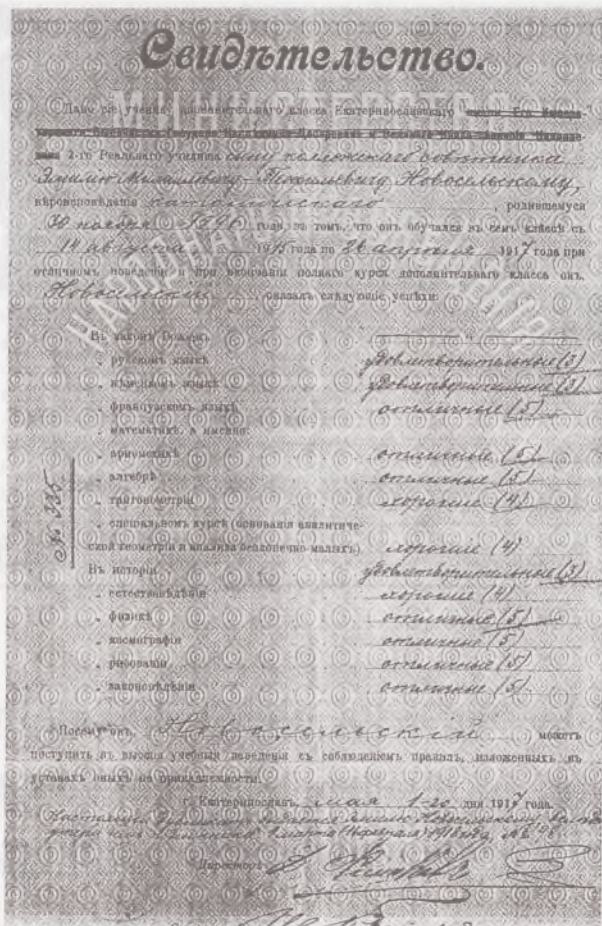 Свидѣтельство.
МИНИСТЕРСТВО
Дано сіе ученику дополнительнаго класса Екатеринославскаго
2-го Реальнаго училища сыну коллежскаго совѣтника
Эмилію Новосельскому,
вѣроисповѣданія католическаго, родившемуся
30 ноября 1896 года, въ томъ, что онъ обучался въ семъ классѣ съ
14 августа 1915 года по 26 апрѣля 1917 года при
отличномъ поведеніи и при окончаніи полнаго курса дополнительнаго класса онъ,
Новосельскій оказалъ слѣдующіе успѣхи:
Въ законѣ Божіемъ
„ русскомъ языкѣ удовлетворительные (3)
„ нѣмецкомъ языкѣ удовлетворительные (3)
„ французскомъ языкѣ отличные (5)
„ математикѣ, а именно:
„ ариѳметикѣ отличные (5)
„ алгебрѣ отличные (5)
„ тригонометріи хорошіе (4)
№ 335
„ спеціальномъ курсѣ (основанія аналитиче-
ской геометріи и анализа безконечно-малыхъ) хорошіе (4)
Въ исторіи удовлетворительные (3)
„ естествовѣдѣніи хорошіе (4)
„ физикѣ отличные (5)
„ космографіи отличные (5)
„ рисованіи отличные (5)
„ законовѣдѣніи отличные (5)
Посему онъ, Новосельскій можетъ
поступить въ высшія учебныя заведенія съ соблюденіемъ правилъ, изложенныхъ въ
уставахъ оныхъ по принадлежности.
г. Екатеринославъ, мая 1-го дня 1917 года.
Новосельскому
марта 1918 года
Директоръ